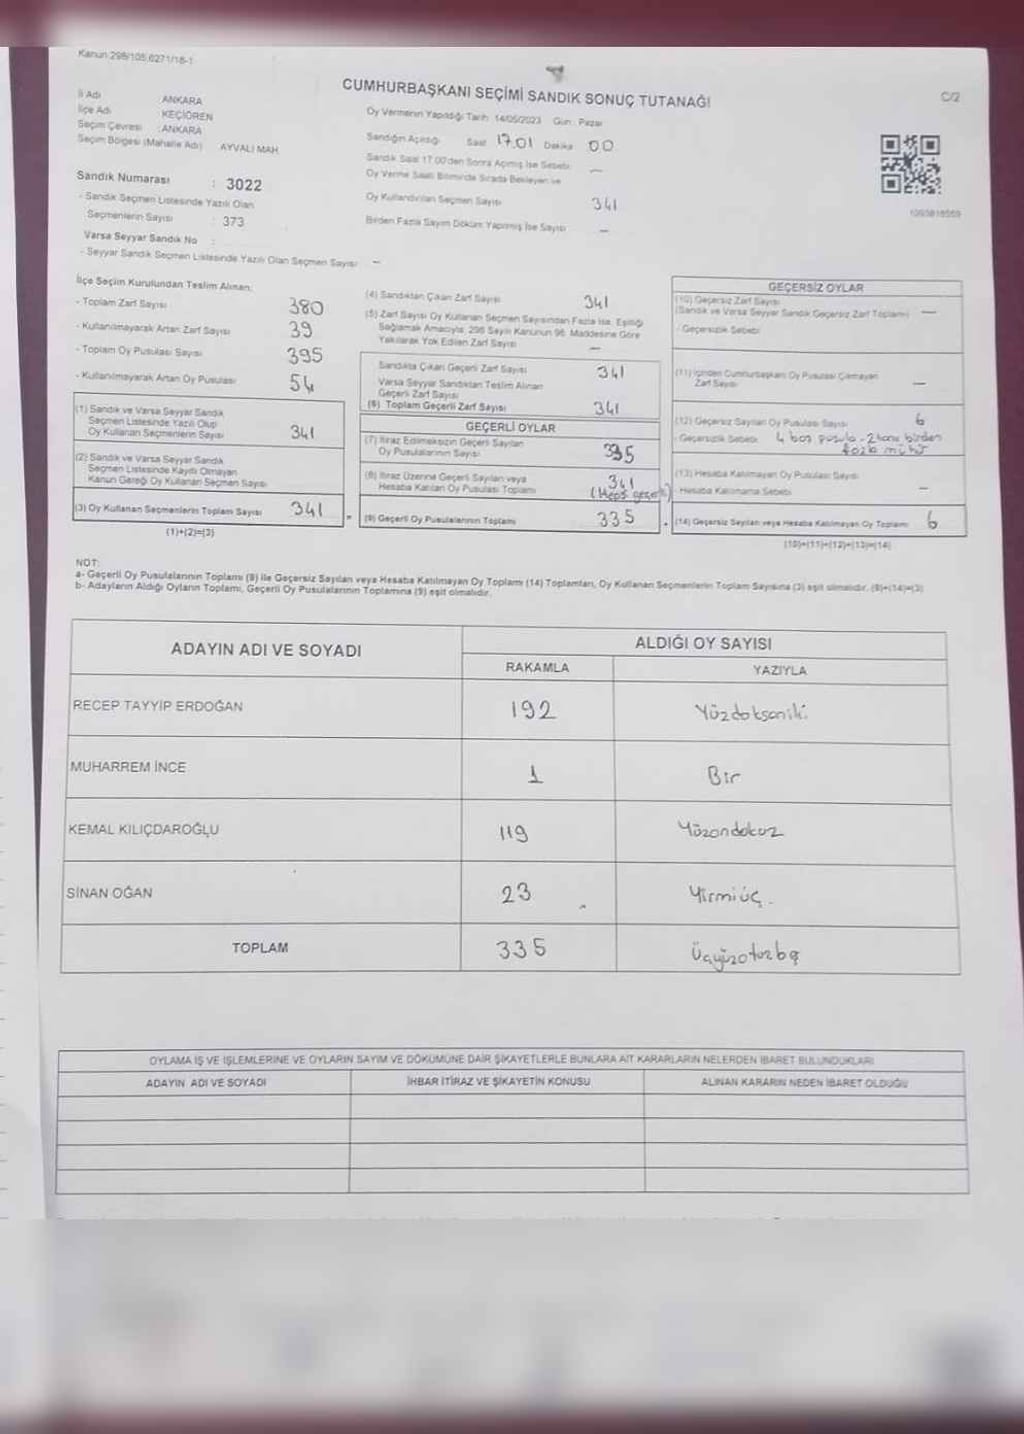 Kanun:298/105,6271/18-1
CUMHURBAŞKANI SEÇİMİ SANDIK SONUÇ TUTANAĞI
C/2
İl Adı : ANKARA
İlçe Adı : KEÇİÖREN
Seçim Çevresi : ANKARA
Seçim Bölgesi (Mahalle Adı) AYVALI MAH.
Sandık Numarası : 3022
- Sandık Seçmen Listesinde Yazılı Olan
Seçmenlerin Sayısı : 373
Varsa Seyyar Sandık No :
- Seyyar Sandık Seçmen Listesinde Yazılı Olan Seçmen Sayısı —
Oy Vermenin Yapıldığı Tarih: 14/05/2023 Gün: Pazar
Sandığın Açıldığı Saat 17.01 Dakika 00
Sandık Saat 17.00'den Sonra Açılmış İse Sebebi —
Oy Verme Saati Bitiminde Sırada Bekleyen ve
Oy Kullandırılan Seçmen Sayısı 341
Birden Fazla Sayım Döküm Yapılmış İse Sayısı —
1093818559
İlçe Seçim Kurulundan Teslim Alınan;
- Toplam Zarf Sayısı 380
- Kullanılmayarak Artan Zarf Sayısı 39
- Toplam Oy Pusulası Sayısı 395
- Kullanılmayarak Artan Oy Pusulası 54
(1) Sandık ve Varsa Seyyar Sandık
Seçmen Listesinde Yazılı Olup
Oy Kullanan Seçmenlerin Sayısı 341
(2) Sandık ve Varsa Seyyar Sandık
Seçmen Listesinde Kayıtlı Olmayan
Kanun Gereği Oy Kullanan Seçmen Sayısı
(3) Oy Kullanan Seçmenlerin Toplam Sayısı 341
(1)+(2)=(3)
(4) Sandıktan Çıkan Zarf Sayısı 341
(5) Zarf Sayısı Oy Kullanan Seçmen Sayısından Fazla İse, Eşitliği
Sağlamak Amacıyla, 298 Sayılı Kanunun 98. Maddesine Göre
Yakılarak Yok Edilen Zarf Sayısı —
Sandıkta Çıkan Geçerli Zarf Sayısı 341
Varsa Seyyar Sandıktan Teslim Alınan
Geçerli Zarf Sayısı
(6) Toplam Geçerli Zarf Sayısı 341
GEÇERLİ OYLAR
(7) İtiraz Edilmeksizin Geçerli Sayılan
Oy Pusulalarının Sayısı 335
(8) İtiraz Üzerine Geçerli Sayılan veya
Hesaba Katılan Oy Pusulası Toplamı 341
(Hepsi geçerli)
(9) Geçerli Oy Pusulalarının Toplamı 335
GEÇERSİZ OYLAR
(10) Geçersiz Zarf Sayısı
(Sandık ve Varsa Seyyar Sandık Geçersiz Zarf Toplamı) —
- Geçersizlik Sebebi:
(11) İçinden Cumhurbaşkanı Oy Pusulası Çıkmayan
Zarf Sayısı —
(12) Geçersiz Sayılan Oy Pusulası Sayısı 6
- Geçersizlik Sebebi: 4 boş pusula - 2 tane birden
fazla mühür
(13) Hesaba Katılmayan Oy Pusulası Sayısı —
- Hesaba Katılmama Sebebi
(14) Geçersiz Sayılan veya Hesaba Katılmayan Oy Toplamı 6
(10)+(11)+(12)+(13)=(14)
NOT:
a- Geçerli Oy Pusulalarının Toplamı (9) ile Geçersiz Sayılan veya Hesaba Katılmayan Oy Toplamı (14) Toplamları, Oy Kullanan Seçmenlerin Toplam Sayısına (3) eşit olmalıdır. (9)+(14)=(3)
b- Adayların Aldığı Oyların Toplamı, Geçerli Oy Pusulalarının Toplamına (9) eşit olmalıdır.
ADAYIN ADI VE SOYADI
ALDIĞI OY SAYISI
RAKAMLA YAZIYLA
RECEP TAYYİP ERDOĞAN 192 Yüzdoksaniki
MUHARREM İNCE 1 Bir
KEMAL KILIÇDAROĞLU 119 Yüzondokuz
SİNAN OĞAN 23 Yirmiüç.
TOPLAM 335 Üçyüzotuzbeş
OYLAMA İŞ VE İŞLEMLERİNE VE OYLARIN SAYIM VE DÖKÜMÜNE DAİR ŞİKAYETLERLE BUNLARA AİT KARARLARIN NELERDEN İBARET BULUNDUKLARI
ADAYIN ADI VE SOYADI İHBAR İTİRAZ VE ŞİKAYETİN KONUSU ALINAN KARARIN NEDEN İBARET OLDUĞU